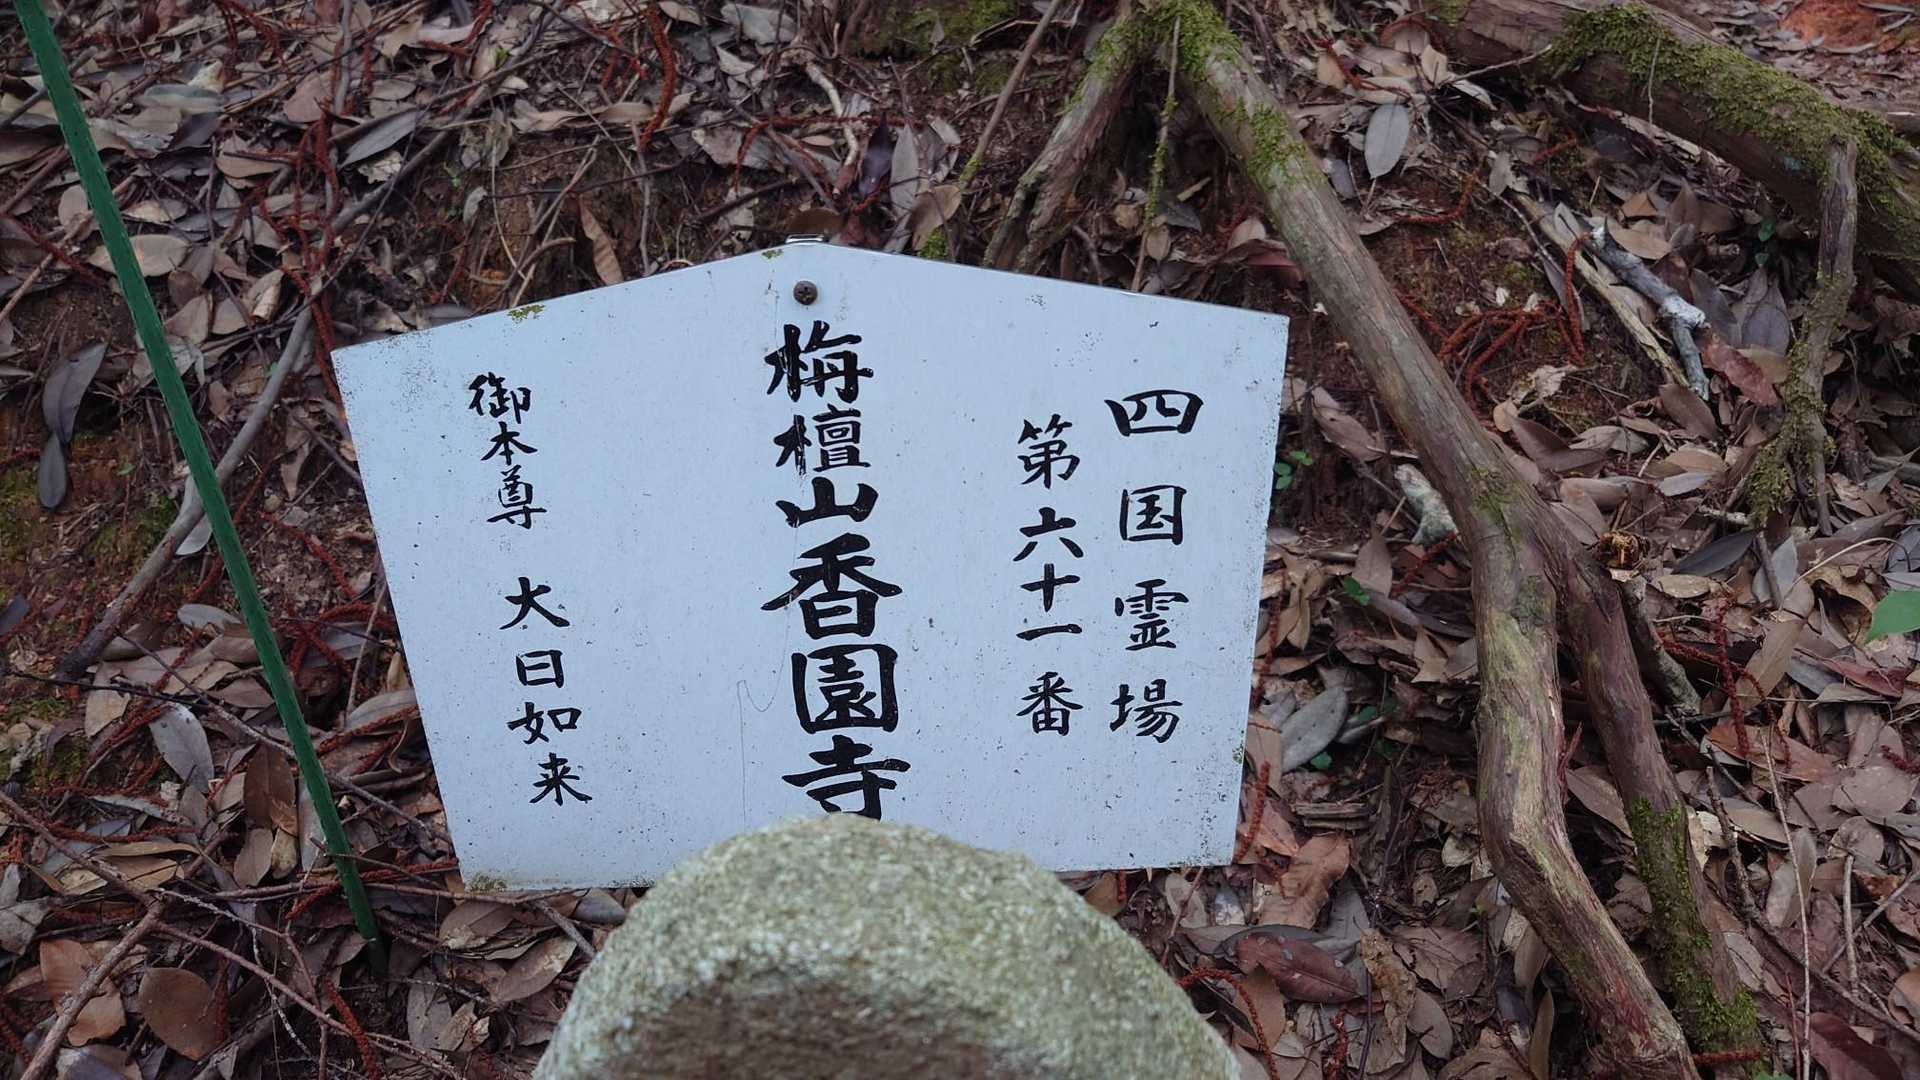 四国霊場
第六十一番
栴檀山香園寺
御本尊 大日如来